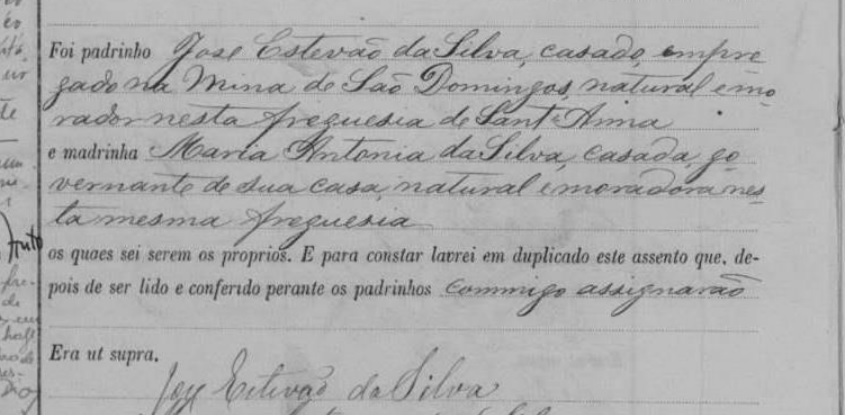 Foi padrinho José Estevão da Silva, casado, empre
gado na Mina de São Domingos, natural e mo
rador nesta freguesia de Sant'Anna
e madrinha Maria Antonia da Silva, casada, go
vernante de sua casa, natural e moradora nes
ta mesma freguesia
os quaes sei serem os proprios. E para constar lavrei em duplicado este assento que, de-
pois de ser lido e conferido perante os padrinhos commigo assignarão
Era ut supra.
José Estevão da Silva